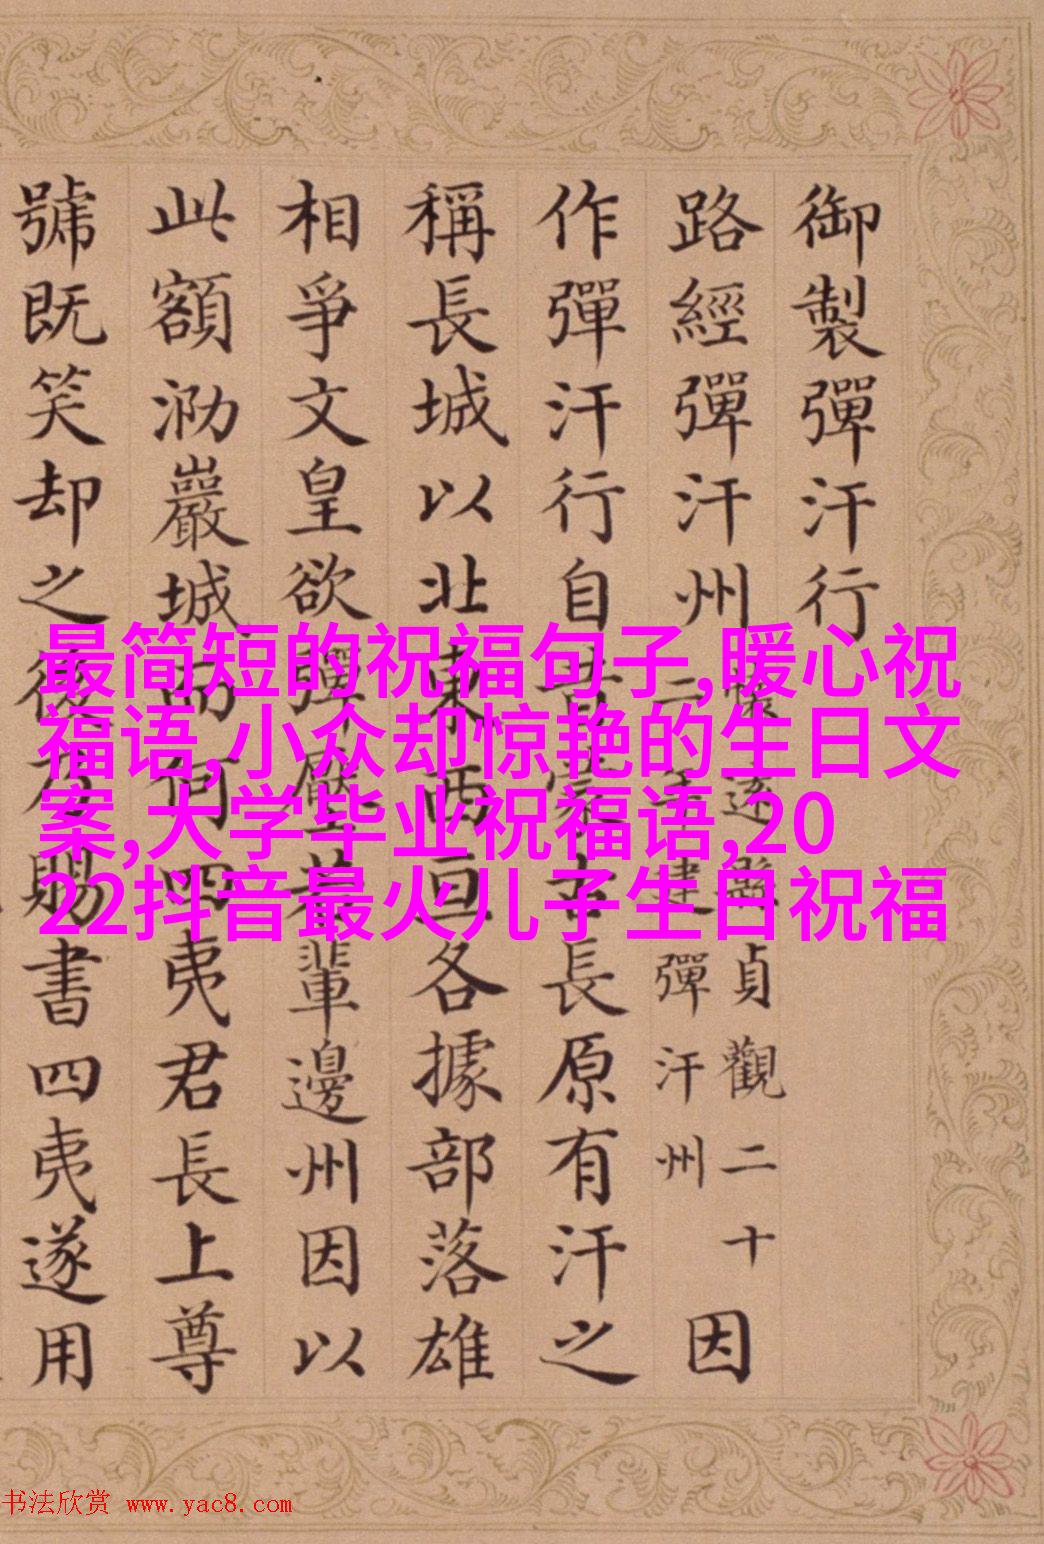 御製彈汗行
路經彈汗州
懷遠貞觀二十
二年建彈汗州
因
作彈汗行自昔蒙古長原有汗之
稱長城以北東西亘各據部落雄
相爭文皇欲彈壓輩邊州因以
此額泐巖城而何四夷君長上尊
號既笑却之後乃賜書四夷遂用
最简短的祝福句子,暖心祝
福语,小众却惊艳的生日文
案,大学毕业祝福语,20
22抖音最火儿子生日祝福
书法欣赏 www.yac8.com